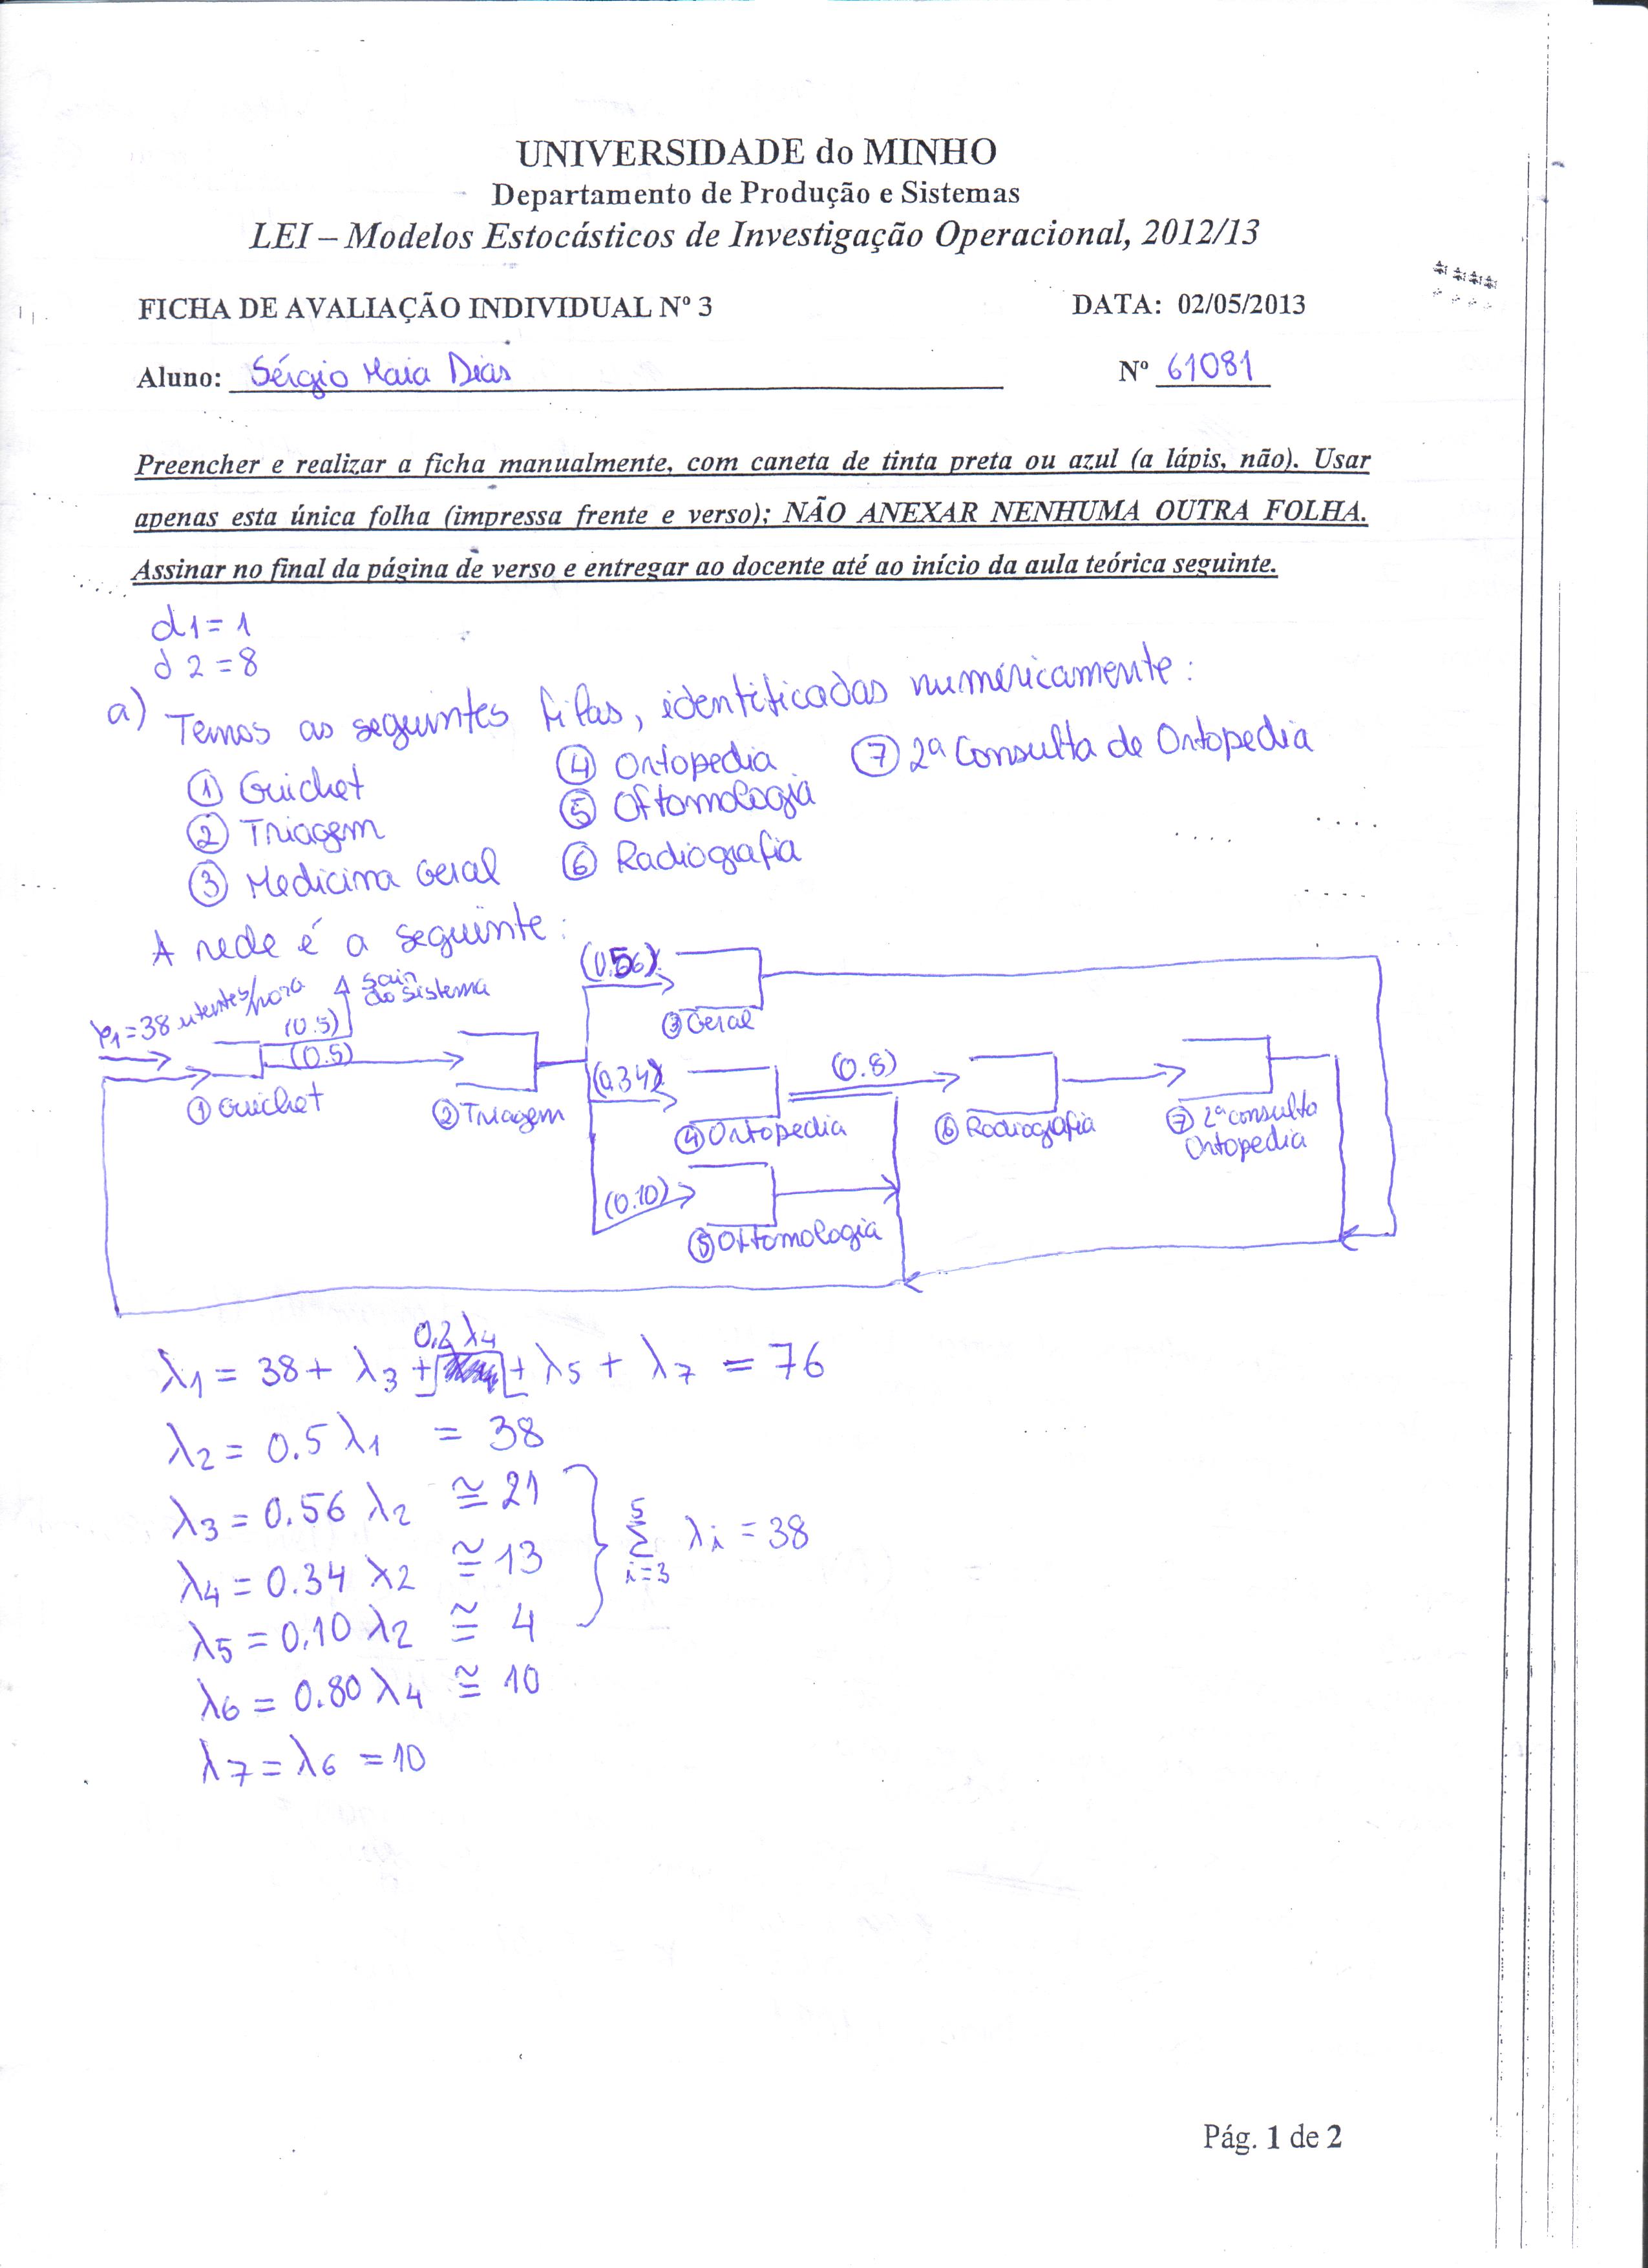 UNIVERSIDADE do MINHO
Departamento de Produção e Sistemas
LEI – Modelos Estocásticos de Investigação Operacional, 2012/13
FICHA DE AVALIAÇÃO INDIVIDUAL Nº 3 DATA: 02/05/2013
Aluno: Sérgio Maia Dias Nº 61081
Preencher e realizar a ficha manualmente, com caneta de tinta preta ou azul (a lápis, não). Usar
apenas esta única folha (impressa frente e verso); NÃO ANEXAR NENHUMA OUTRA FOLHA.
Assinar no final da página de verso e entregar ao docente até ao início da aula teórica seguinte.
d1 = 1
d2 = 8
a) Temos as seguintes filas, identificadas numéricamente:
① Guichet ④ Ortopedia ⑦ 2ª Consulta de Ortopedia
② Triagem ⑤ Oftomologia
③ Medicina Geral ⑥ Radiografia
A rede é a seguinte:
γ1 = 38 utentes/hora
sair do sistema
(0.5)
(0.5)
① Guichet
② Triagem
(0.56)
③ Geral
(0.34)
④ Ortopedia
(0.8)
⑥ Radiografia
⑦ 2ª consulta
Ortopedia
(0.10)
⑤ Oftomologia
0,2 λ4
λ1 = 38 + λ3 + + λ5 + λ7 = 76
λ2 = 0.5 λ1 = 38
λ3 = 0.56 λ2 ≅ 21
λ4 = 0.34 λ2 ≅ 13
5 Σ i=3 λi = 38
λ5 = 0,10 λ2 ≅ 4
λ6 = 0.80 λ4 ≅ 10
λ7 = λ6 = 10
Pág. 1 de 2